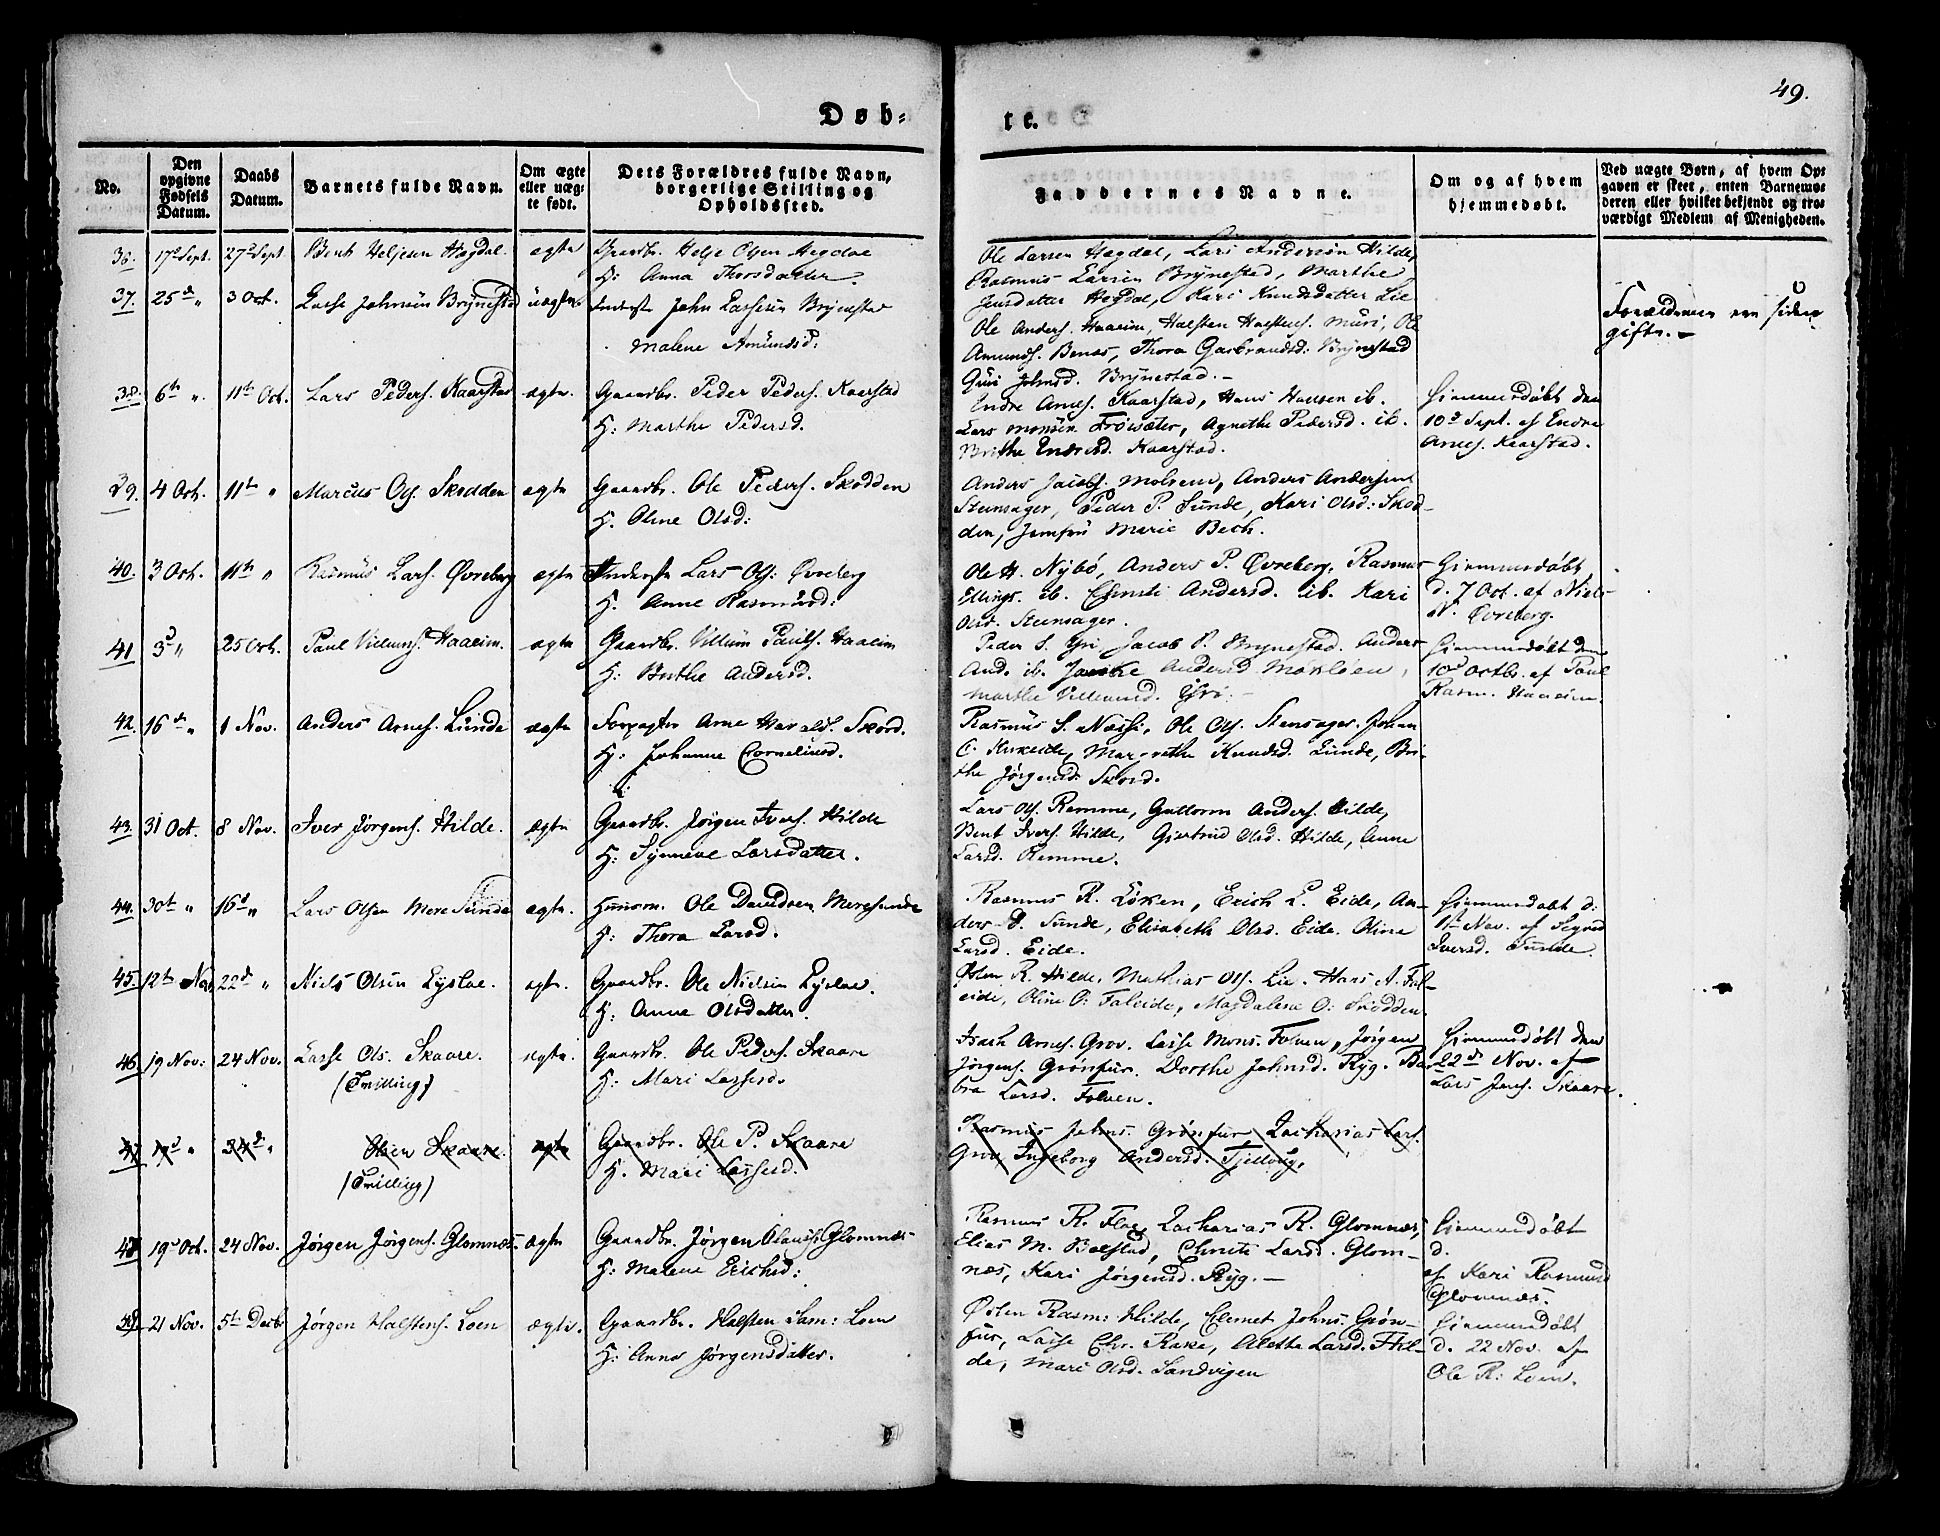 49.
Døb=
te.
No.
Den opgivne Fødsels Datum.
Daabs Datum.
Barnets fulde Navn.
Om ægte eller uægte født.
Dets Forældres fulde Navn, borgerlige Stilling og Opholdssted.
Faddernes Navne.
Om og af hvem hjemmedøbt.
Ved uægte Børn, af hvem Opgaven er skeet, enten Barnemoderen eller hvilket bekjendt og troværdigt Medlem af Menigheden.
36. 17d Sept. 27d Sept. Bent Heljesen Hægdal. ægte Gaardbr. Helje Olsen Hegdal
H: Anna Thorsdatter.
Ole Larsen Hegdal, Lars Andersen Hilde,
Rasmus Larsen Brynestad, Marthe
Jensdatter Hegdal, Kari Knudsdatter Lie
37. 25d " 3 Oct. Lasse Johnsen Brynestad uægte. Inderste John Lassesen Brynestad
Malene Amundsd:
Ole Anders. Haaeim, Halsten Halstens. Muri, Ole
Amunds. Benes, Thora Gudbrandsd: Brynestad
Guri Johnsd. Brynestad. -
Forældrene ere siden
gifte. -
38. 6te ". 11te Oct. Lars Peders. Kaarstad ægte. Gaardbr. Peder Peders. Kaarstad
H: Marthe Pedersd.
Endre Arnes. Kaarstad, Hans Hansen ib.
Lars Monsen Frøisæter, Agnethe Pedersd. ib.
Brithe Endresd. Kaarstad.
Hjemmedøbt den
10d Sept. af Endre
Arnes. Kaarstad.
39. 4 Oct. 11te " Marcus Ols. Skodden ægte Gaardbr. Ole Peders. Skodden
H. Oline Olsd:
Anders Jacobs. Molvem, Anders Andersen
Steinsager, Peder P. Sunde, Kari Olsd: Skod-
den, Jomfru Marie Bech.
40. 3 Oct. 11te " Rasmus Lars. Øvreberg ægte Inderste Lars Ols: Øvreberg
H. Anne Rasmusd:
Ole H. Nybø, Anders P. Øvreberg, Rasmus
Ellings. ib. Christi Andersd. ib. Kari
Olsd. Steensager.
Hjemmedøbt
d. 7 Oct. af Niels
N. Øvreberg.
41 3d " 25 Oct. Paul Villums. Haaeim. ægte Gaardbr. Villum Pauls. Haaeim
H: Birthe Andersd.
Peder S. Yri, Jacob P. Brynestad. Anders
And. ib. Andersd
Marthe Villumsd. Yri. -
Hjemmedøbt den
10d Octbr. af Paul
Rasm. Haaeim.
42. 16d " 1 Nov. Anders Arnes. Lunde ægte Forpagter Arne Haralds. Skord.
H: Johanne Corneliusd.
Rasmus S. Nosse, Ole Ols. Stensager. Johan
C. Kirkeide, Margrethe Knudsd. Lunde, Bri-
the Jørgensd. Skord.
43. 31 Oct. 8 Nov. Iver Jørgens. Hilde. ægte Gaardbr. Jørgen Ivers. Hilde
H: Synneve Larsdatter.
Lars Ols. Remme, Guttorm Anders. Hilde,
Bent Ivers. Hilde, Gjertrud Olsd. Hilde, Anne
Larsd. Remme.
44. 30te " 16d " Lars Olsen Mere Sunde ægte. Huusm. Ole Davidsen Meresunde
H: Thora Larsd.
Rasmus R. Løken, Erich L. Eide, An-
ders D. Sunde, Elisabeth Olsd. Eide. Oline
Larsd. Eide.
Hjemmedøbt d:
1st Nov. af Sigrid
Iversd. Sunde.
45. 12te Nov 22d " Niels Olsen Lyslae. ægte. Gaardbr. Ole Nielsen Lyslae.
H: Anne Olsdatter.
Østen R. Hilde, Mathias Ols. Lie. Hans A. Fal-
eide, Oline O: Faleide, Magdalene O: Skodden.
46. 19 Nov: 24 Nov. Lasse Ols. Skaare. ægte. Gaardbr. Ole Peders. Skaare
(Tvilling) H: Mari Lassesd.
Isach Arnes. Grov. Lasse Mons. Folven, Jørgen
Jørgens. Grønfur. Dorthe Johnsd. Ryg. Bar-
bra Larsd. Folven.
Hjemmedøbt den
22d Nov. af
Lars Jens. Skaare.
47 19d " 24d " Olsen Skaare. ægte Gaardbr. Ole P. Skaare
(Tvilling) H. Mari Lassesd.
Rasmus Johns. Grønfur Zacharias Lars.
Grov Ingeborg Andersd. Tjellaug.
19d Oct. 24 Nov. Jørgen Jørgens. Glomnes. ægte Gaardbr. Jørgen Claus. Glomnes
H: Malene Erichsd:
Rasmus R. Floe, Zacharias R. Glomnes,
Elias M. Bolstad, Christi Larsd. Glom-
nes, Kari Jørgensd. Ryg. -
Hjemmedøbt
d.
af Kari Rasmusd
Glomnes.
21 Nov. 5te Decbr Jørgen Halstens. Loen ægte. Gaardbr. Halsten Sam: Loen
H: Anna Jørgensdatter.
Østen Rasm: Hilde, Clemet Johns. Grøn-
fur, Lasse Chr. Rake, Alethe Larsd. Hil-
de, Mari Olsd. Sandvigen
Hjemmedøbt
d. 22 Nov. af
Ole R: Loen.